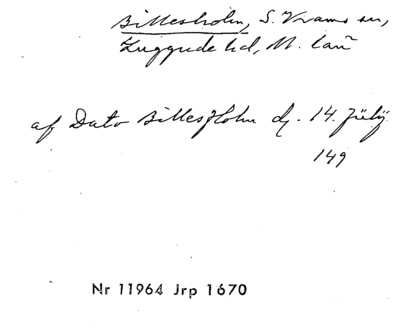 Billesholm, S. Vrams sn,
Luggude hd, M. län
af Dato Billesholm dj. 14. Júlÿ
149
Nr 11964 Jrp 1670